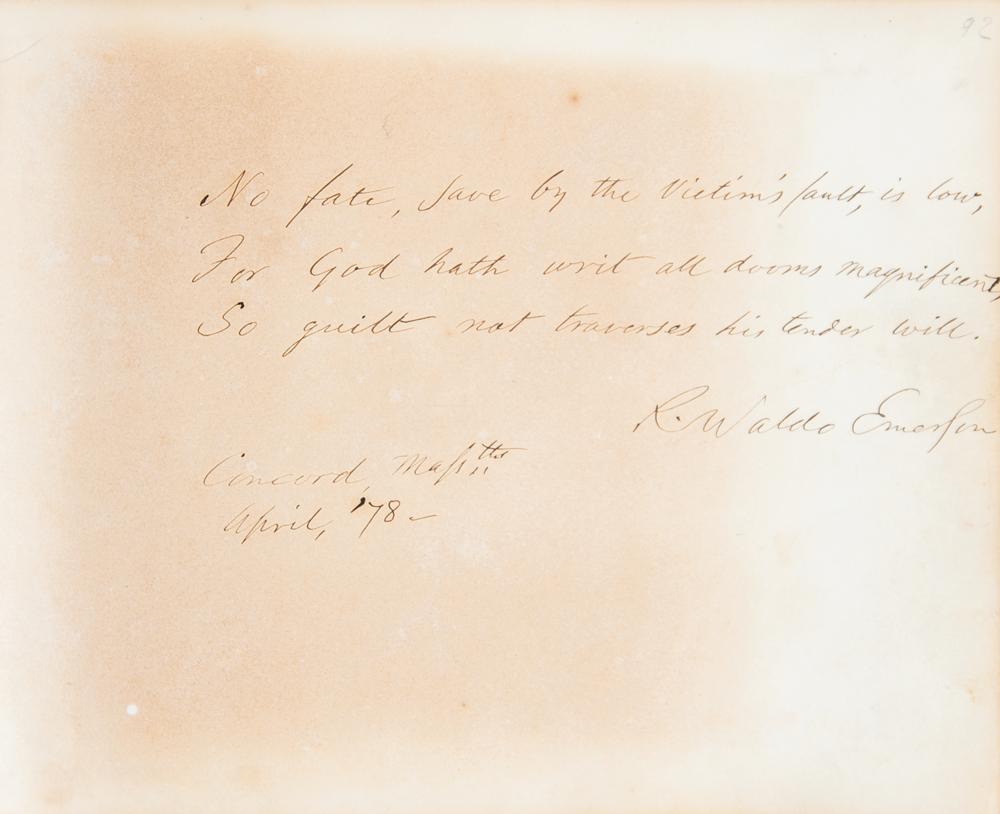 92
No fate, save by the Victim's fault, is low,
For God hath writ all dooms magnificent,
So guilt not traverses his tender will.
R. Waldo Emerson
Concord, Mass.tts
April, '78 –